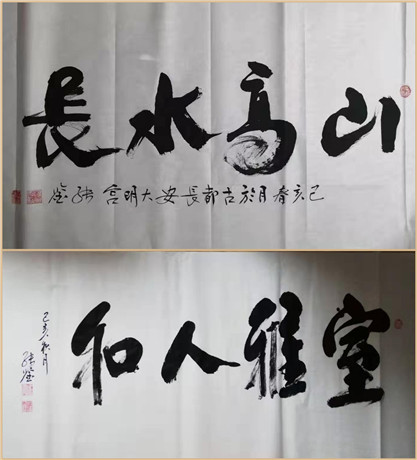 山高水長
己亥春月於古都長安大明宮
室雅人和
己亥秋月